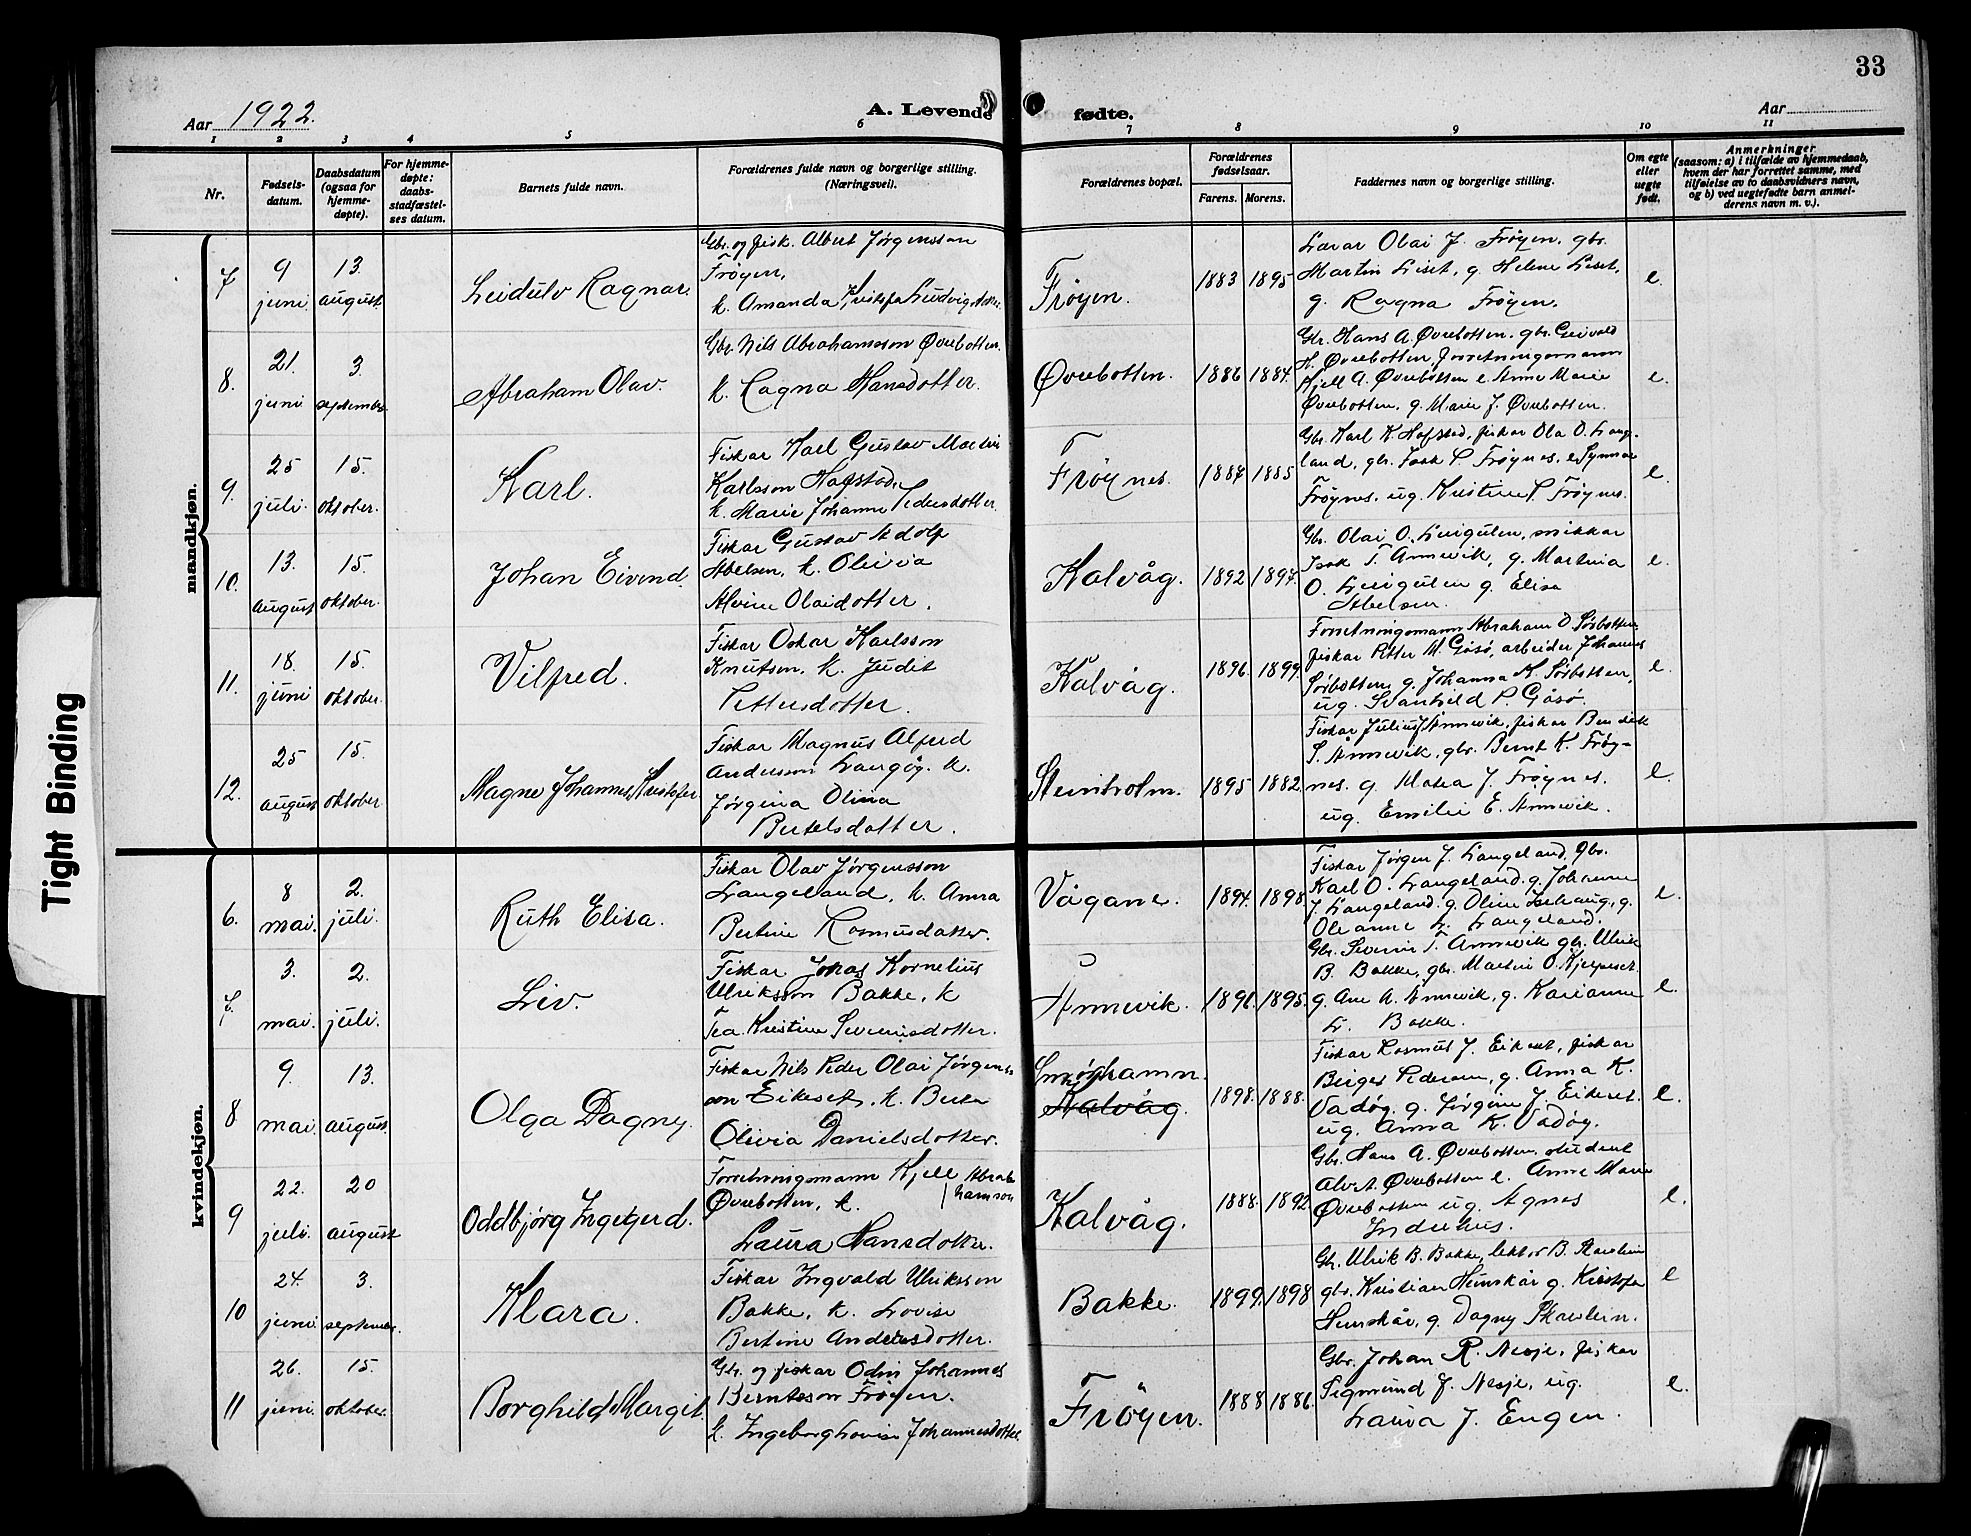 33
Aar 1922.
A. Levende fødte.
Aar
1 2 3 4 5 6 7 8 9 10 11
Nr.
Fødsels-
datum.
Daabsdatum
(ogsaa for
hjemme-
døpte).
For hjemme-
døpte:
daabs-
stadfæstel-
ses datum.
Barnets fulde navn.
Forældrenes fulde navn og borgerlige stilling.
(Næringsvei).
Forældrenes bopæl.
Forældrenes
fødselsaar.
Farens. Morens.
Faddernes navn og borgerlige stilling.
Om egte
eller
uegte
født.
Anmerkninger
(saasom: a) i tilfælde av hjemmedaab,
hvem der har forrettet samme, med
tilføielse av to daabsvidners navn,
og b) ved uegtefødte barn anmel-
derens navn m. v.).
mandkjøn.
7
9
juni
13.
august.
Leidulv Ragnar.
Gbr. og fisk. Albert Jørgensson
Frøyen,
k. Amanda Kristofa Ludvig
Frøyen.
1883 1895
Lærar Olai J. Frøyen, gbr.
Martin Liset, g. Helene Liset,
g. Ragna Frøyen.
e.
8.
21.
juni
3.
september
Abraham Olav.
Gbr. Nils Abrahamsson Øvrebotten.
k. Ragna Hansdotter.
Øvrebotten.
1886 1884.
Gbr. Hans A. Øvrebotten, gbr.
H. Øvrebotten, forretningsmann
Kjell A. Øvrebotten e. Anne Marie
Øvrebotten, g. Marie J. Øvrebotten.
e.
9.
25
juli.
15.
oktober.
Karl.
Fiskar Karl Gustav Martin
Karlsson Hafstad,
k. Marie Johanne Pedersdotter.
Frøynes.
1887 1885
Gbr. Karl K. Hafstad, fiskar Ola O. Lange-
land, gbr. Isak P. Frøynes, e.
Frøynes, ug. Kristine P. Frøynes.
e.
10.
13.
august
15.
oktober.
Johan Eivind.
Fiskar Gustav Adolf
Abelsen, k. Olivia
Alvine Olaidotter.
Kalvåg.
1892 1897.
Gbr. Olai O. Leirgulen, snikkar
Isak T. Annevik, g. Martina
O. Leirgulen g. Elisa
Abelsen.
e.
11.
18.
juni
15.
oktober.
Vilfred.
Fiskar Oskar Karlsson
Knutsen, k. Judit
Pettersdotter.
Kalvåg.
1896. 1899
Forretningsmann Abraham O. Sørbotten,
fiskar Petter M. Gåsø, arbeider Johannes
Sørbotten, g. Johanna K. Sørbotten,
ug. Svanhild P. Gåsø.
e.
12.
25
august
15.
oktober
Magne Johannes Kristofer
Fiskar Magnus Alfred
Andersson Langøy. k.
Jørgina Olina
Bertelsdotter.
Steinholm.
1895 1882
Fiskar Julius J. Annevik, fiskar Bendik
S. Annevik, gbr. Bernt K. Frøy-
nes. g Matea J. Frøynes.
ug. Emilie E. Annevik.
e.
kvindekjøn.
6.
8
mai.
2.
juli.
Ruth Elisa.
Fiskar Olav Jørgensson
Langeland, k. Anna
Bertine Rasmusdatter.
Vågane.
1894. 1898.
Fiskar Jørgen J. Langeland, gbr.
Karl O. Langeland. g. Johanne
J. Langeland. g. Oline, g.
Oleanne L. Langeland.
e.
7.
3.
mai.
2.
juli.
Liv.
Fiskar Jonas Kornelius
Ulriksson Bakke, k
Tea Kristine Severinsdotter.
Annevik.
1896. 1895.
Gbr. Severin T. Annevik gbr. Ulrik
B. Bakke, gbr. Martin O.
g. Ane A. Annevik, g. Karianne
L. Bakke.
e.
8
9.
mai.
13.
august.
Olga Dagny.
Fiskar Nils Peder Olai Jørgens-
son Eikeset, k. Berta
Olivia Danielsdotter.
Smørhamn.
Kalvåg.
1898. 1888.
Fiskar Rasmus J. Eikeset, fiskar
Birger Pedersen, g. Anna K.
Vadøy. g. Jørgine J. Eikeset.
ug. Anna K. Vadøy.
e.
9
22.
juli.
20
august
Oddbjørg Ingegerd.
Forretningsmann Kjell Abra-
hamson
Øvrebotten, k.
Laura Hansdotter.
Kalvåg.
1888. 1892
Gbr. Hans A. Øvrebotten, student
Alv A. Øvrebotten e. Anne Marie
Øvrebotten ug. Agnes
Indrehus.
e.
10
24.
juni.
3.
september.
Klara.
Fiskar Ingvald Ulriksson
Bakke, k. Lovise
Bertine Andreasdotter.
Bakke.
1899. 1898
Gbr. Ulrik B. Bakke, lektor B.
gbr. Kristian Húnskår g. Kristofa
g. Dagny
e
11
26.
juni.
15.
oktober.
Borghild Margit.
Gbr. og fiskar Odin Johannes
Berntsson Frøyen.
k. Ingeborg Lovise Johannesdotter.
Frøyen.
1888 1886.
Gbr. Johan R. Nesje, fiskar
Sigmund J. Nesje, ug.
Laura J. Engen.
e.
Tight Binding